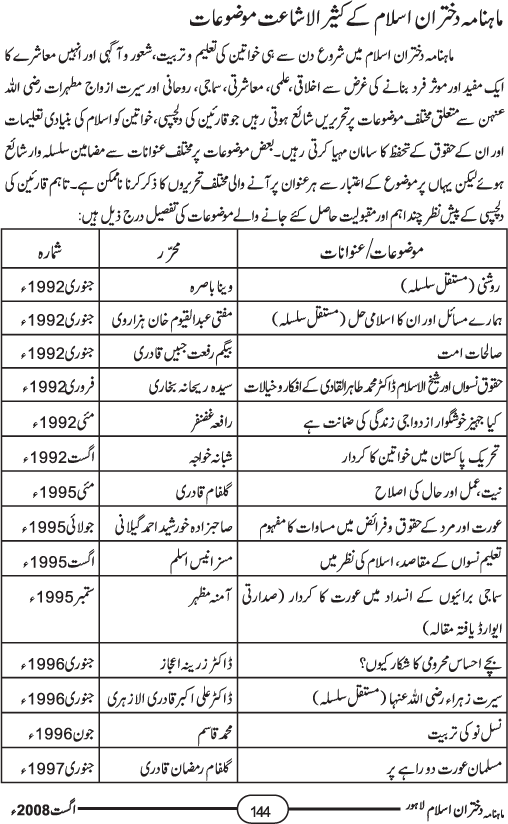 ماہنامہ دختران اسلام کے کثیر الاشاعت موضوعات
ماہنامہ دختران اسلام میں شروع دن سے ہی خواتین کی تعلیم و تربیت، شعور و آگہی اور انہیں معاشرے کا
ایک مفید اور موثر فرد بنانے کی غرض سے اخلاقی، علمی، معاشرتی، سماجی، روحانی اور سیرت ازواج مطہرات رضی اللہ
عنہن سے متعلق مختلف موضوعات پر تحریریں شائع ہوتی رہیں جو قارئین کی دلچسپی، خواتین کو اسلام کی بنیادی تعلیمات
اور ان کے حقوق کے تحفظ کا سامان مہیا کرتی رہیں۔ بعض موضوعات پر مختلف عنوانات سے مضامین سلسلہ وار شائع
ہوئے لیکن یہاں پر موضوع کے اعتبار سے ہر عنوان پر آنے والی مختلف تحریروں کا ذکر کرنا ناممکن ہے۔ تاہم قارئین کی
دلچسپی کے پیش نظر چند اہم اور مقبولیت حاصل کئے جانے والے موضوعات کی تفصیل درج ذیل ہیں:
موضوعات/عنوانات محرّر شمارہ
روشنی (مستقل سلسلہ) وینا باصرہ جنوری1992ء
ہمارے مسائل اور ان کا اسلامی حل (مستقل سلسلہ) مفتی عبدالقیوم خان ہزاروی جنوری1992ء
صالحات امت بیگم رفعت جبیں قادری جنوری1992ء
حقوق نسواں اور شیخ الاسلام ڈاکٹر محمد طاہرالقادی کے افکار و خیالات سیدہ ریحانہ بخاری فروری1992ء
کیا جہیز خوشگوار ازدواجی زندگی کی ضمانت ہے رافعہ غضنفر مئی1992ء
تحریک پاکستان میں خواتین کا کردار شبانہ خواجہ اگست1992ء
نیت، عمل اور حال کی اصلاح گلفام قادری مئی1995ء
عورت اور مرد کے حقوق و فرائض میں مساوات کا مفہوم صاحبزادہ خورشید احمد گیلانی جولائی1995ء
تعلیم نسواں کے مقاصد، اسلام کی نظر میں مسز انیس اسلم اگست1995ء
سماجی برائیوں کے انسداد میں عورت کا کردار (صدارتی آمنہ مظہر ستمبر1995ء
ایوارڈ یافتہ مقالہ)
بچے احساس محرومی کا شکار کیوں؟ ڈاکٹر زرینہ اعجاز جنوری1996ء
سیرت زہراء رضی اللہ عنہا (مستقل سلسلہ) ڈاکٹر علی اکبر قادری الازہری جنوری1996ء
نسل نو کی تربیت محمد قاسم جون1996ء
مسلمان عورت دوراہے پر گلفام رمضان قادری جنوری1997ء
ماہنامہ دختران اسلام لاہور 144 اگست2008ء